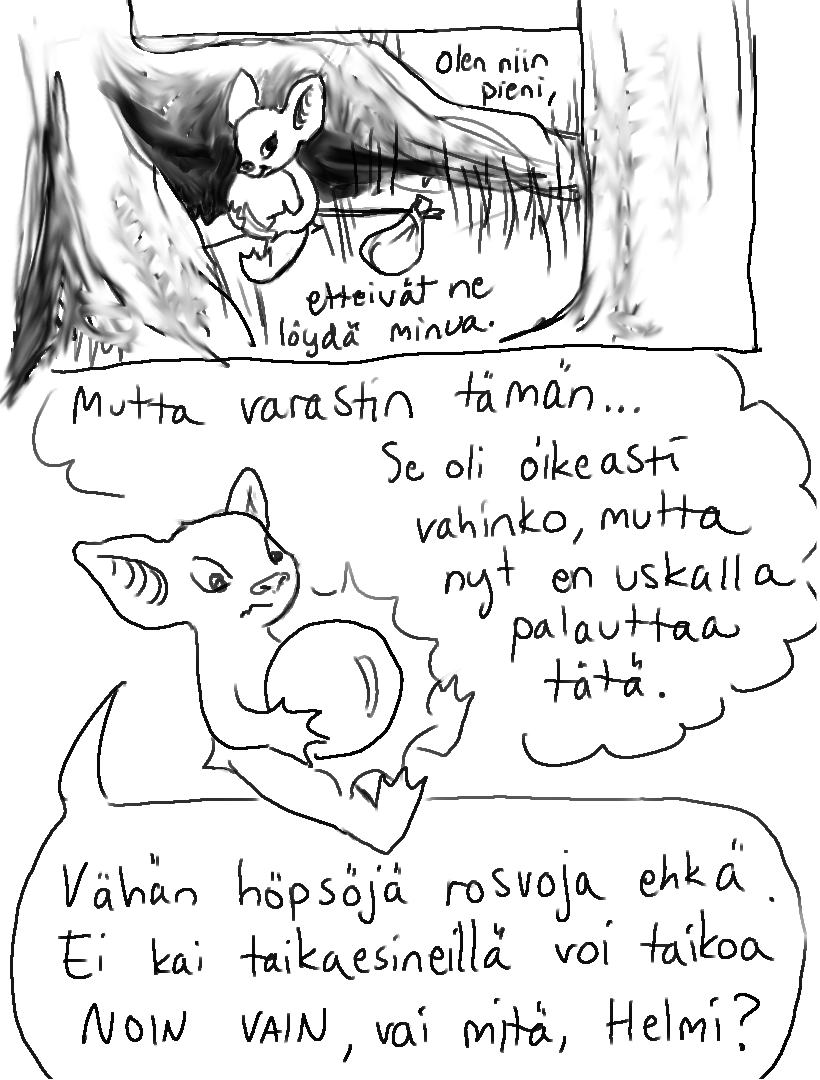 Olen niin
pieni,
etteivät ne
löydä minua.
Mutta varastin tämän...
Se oli oikeasti
vahinko, mutta
nyt en uskalla
palauttaa
tätä.
Vähän höpsöjä rosvoja ehkä.
Ei kai taikaesineillä voi taikoa
NOIN VAIN, vai mitä, Helmi?